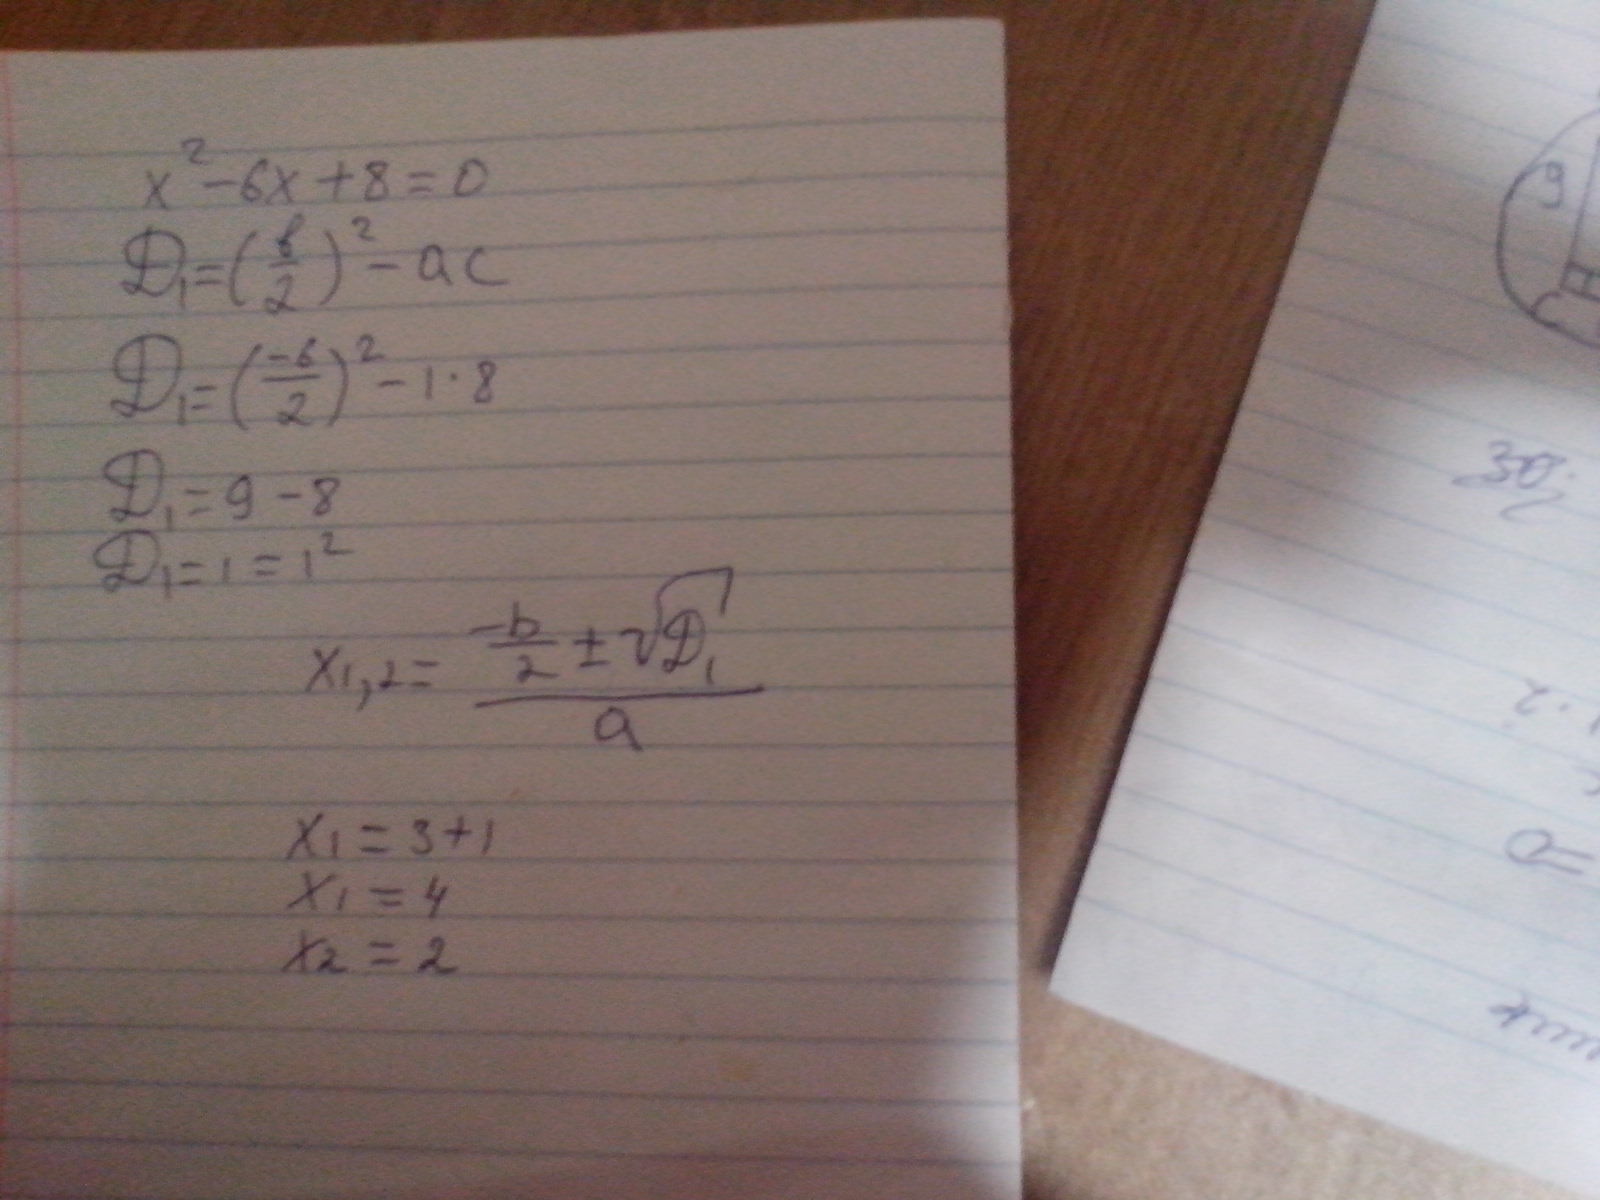 x² - 6x + 8 = 0
D₁ = (b/2)² - ac
D₁ = (-6/2)² - 1·8
D₁ = 9 - 8
D₁ = 1 = 1²
x₁,₂ = (-b/2 ± √D₁)/a
x₁ = 3 + 1
x₁ = 4
x₂ = 2